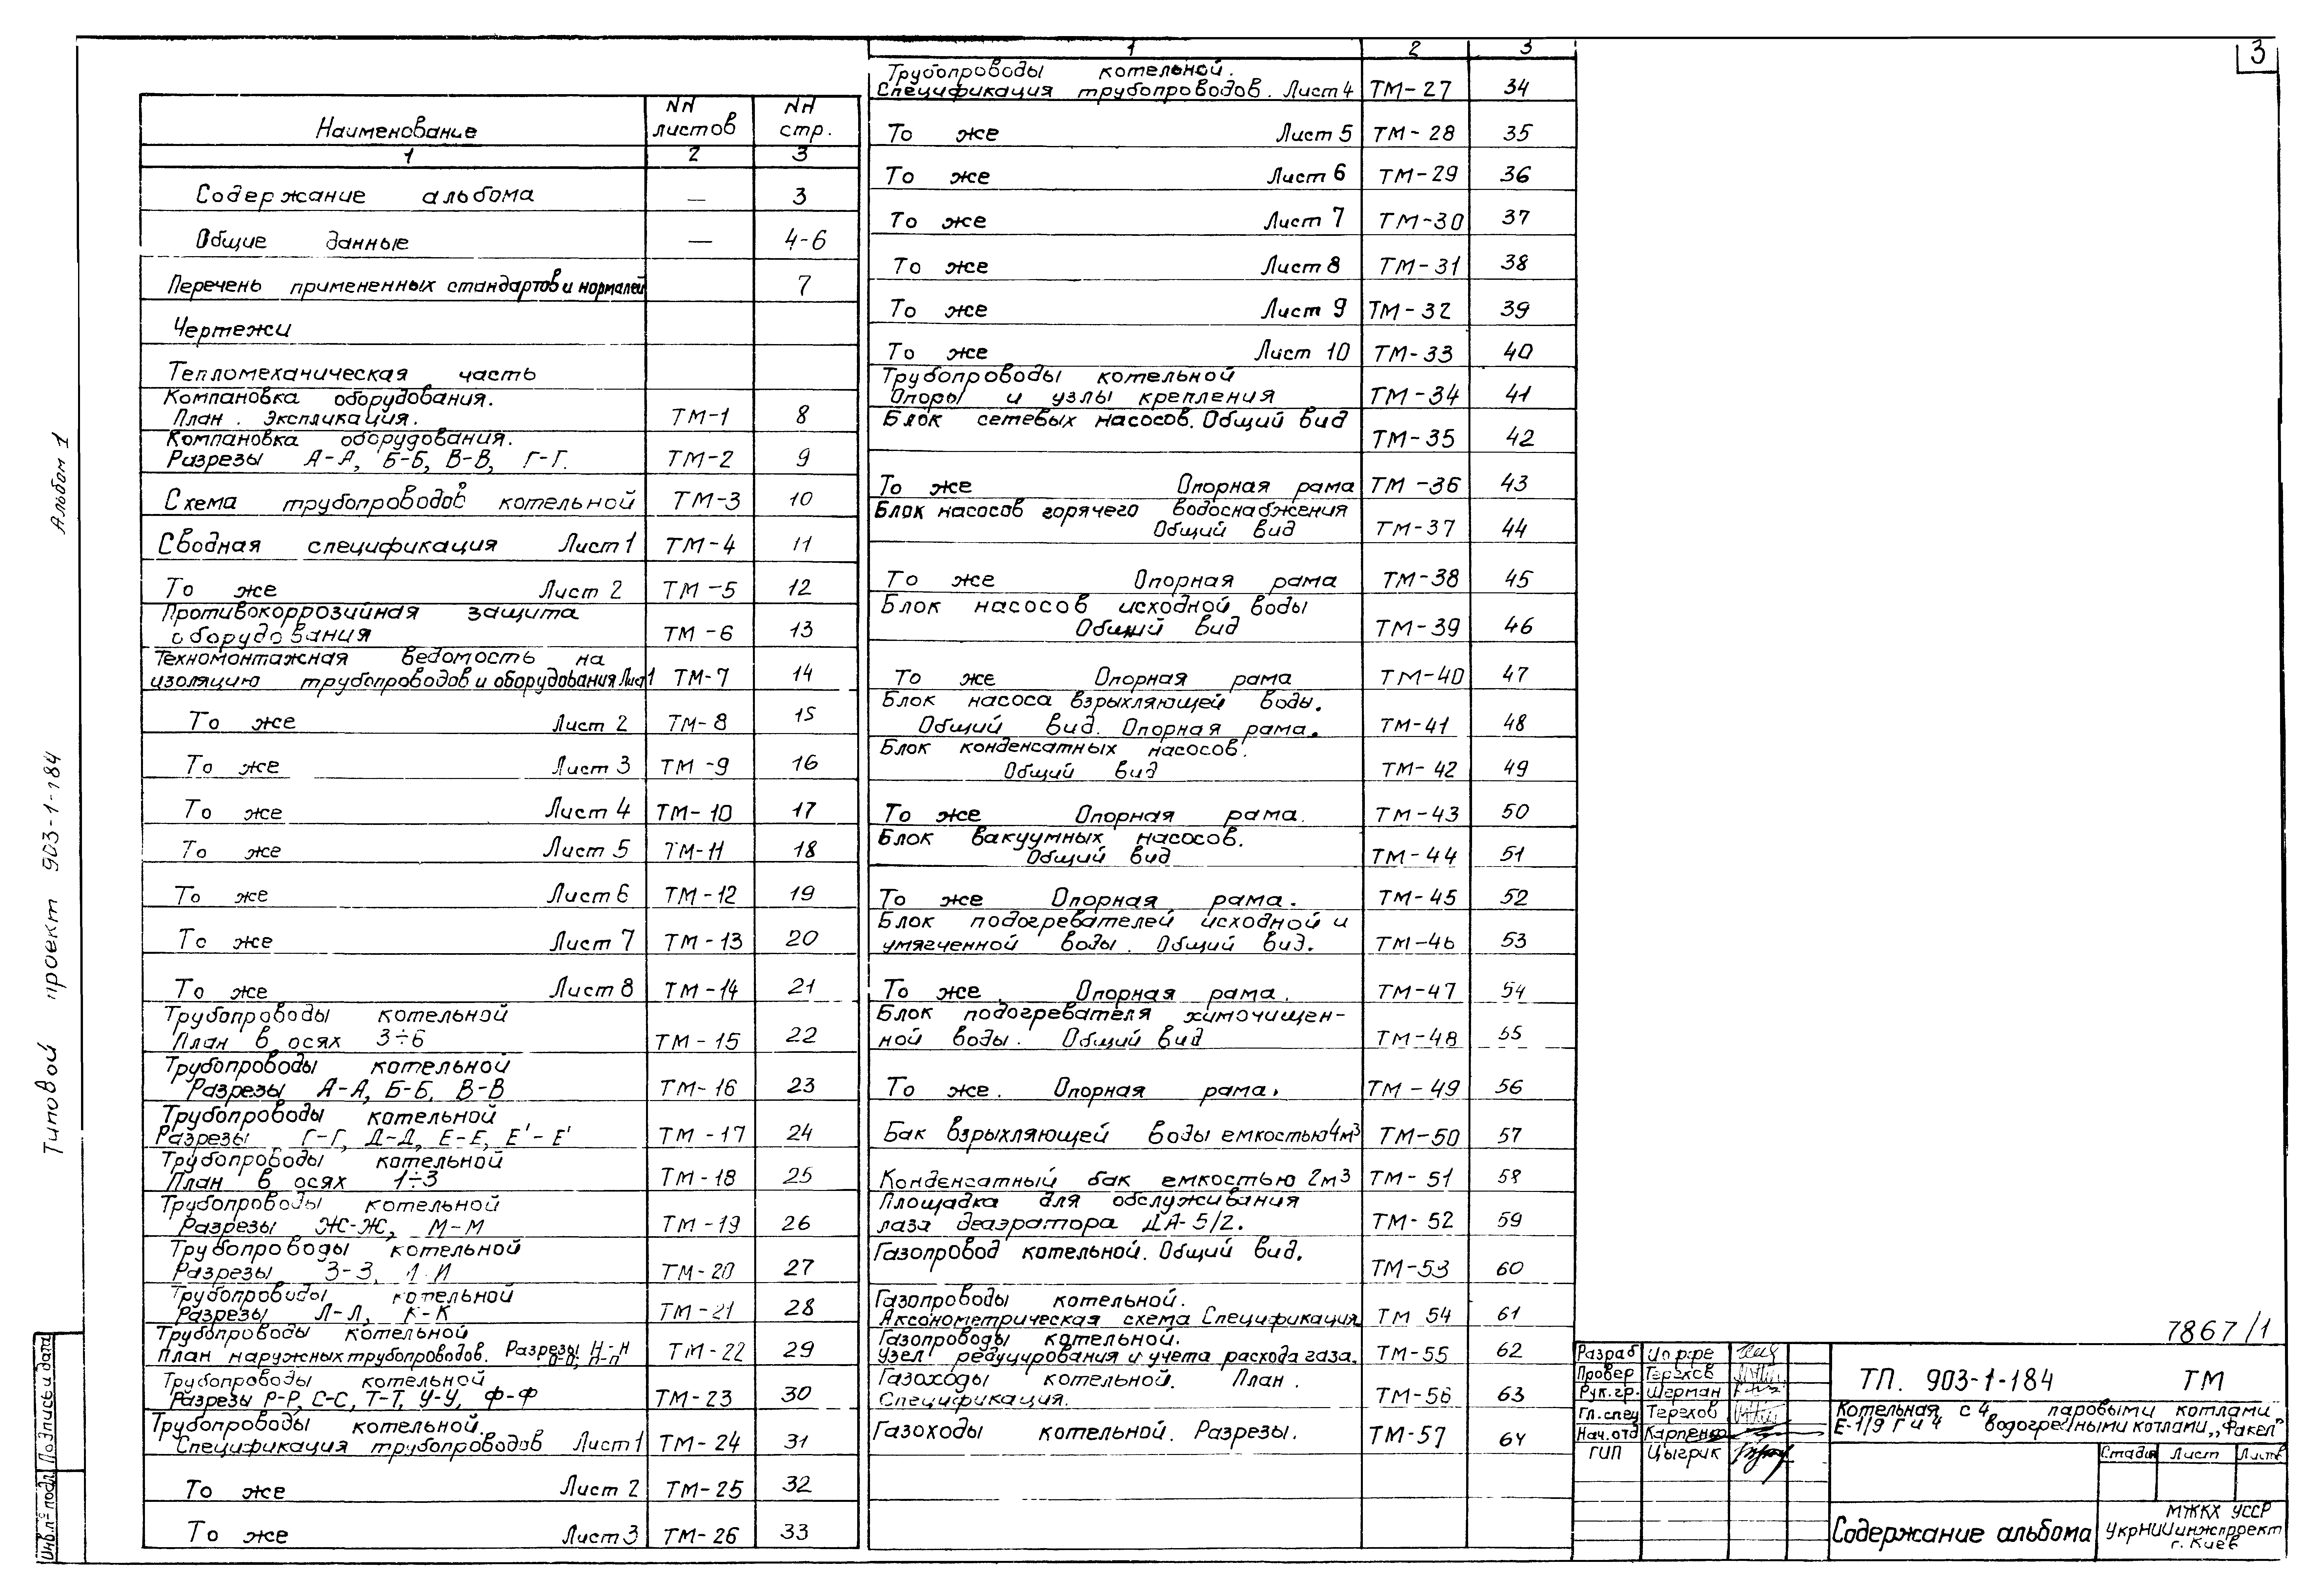 3
Альбом 1
Типовой проект 903-1-184
Подпись и дата
Инв. № подл.
Наименование NN листов NN стр.
1 2 3
Содержание альбома — 3
Общие данные — 4-6
Перечень примененных стандартов и нормалей 7
Чертежи
Тепломеханическая часть
Компановка оборудования.
План. Экспликация. ТМ-1 8
Компановка оборудования.
Разрезы А-А, Б-Б, В-В, Г-Г. ТМ-2 9
Схема трубопроводов котельной ТМ-3 10
Сводная спецификация Лист 1 ТМ-4 11
То же Лист 2 ТМ-5 12
Противокоррозийная защита
оборудования ТМ-6 13
Техномонтажная ведомость на
изоляцию трубопроводов и оборудования Лист 1 ТМ-7 14
То же Лист 2 ТМ-8 15
То же Лист 3 ТМ-9 16
То же Лист 4 ТМ-10 17
То же Лист 5 ТМ-11 18
То же Лист 6 ТМ-12 19
То же Лист 7 ТМ-13 20
То же Лист 8 ТМ-14 21
Трубопроводы котельной
План в осях 3÷6 ТМ-15 22
Трубопроводы котельной
Разрезы А-А, Б-Б, В-В ТМ-16 23
Трубопроводы котельной
Разрезы Г-Г, Д-Д, Е-Е, Е'-Е' ТМ-17 24
Трубопроводы котельной
План в осях 1÷3 ТМ-18 25
Трубопроводы котельной
Разрезы Ж-Ж, М-М ТМ-19 26
Трубопроводы котельной
Разрезы З-З, ТМ-20 27
Трубопроводы котельной
Разрезы Л-Л, К-К ТМ-21 28
Трубопроводы котельной
План наружных трубопроводов. Разрезы Н-Н О-О, П-П ТМ-22 29
Трубопроводы котельной
Разрезы Р-Р, С-С, Т-Т, У-У, Ф-Ф ТМ-23 30
Трубопроводы котельной.
Спецификация трубопроводов Лист 1 ТМ-24 31
То же Лист 2 ТМ-25 32
То же Лист 3 ТМ-26 33
1 2 3
Трубопроводы котельной.
Спецификация трубопроводов. Лист 4 ТМ-27 34
То же Лист 5 ТМ-28 35
То же Лист 6 ТМ-29 36
То же Лист 7 ТМ-30 37
То же Лист 8 ТМ-31 38
То же Лист 9 ТМ-32 39
То же Лист 10 ТМ-33 40
Трубопроводы котельной
Опоры и узлы крепления ТМ-34 41
Блок сетевых насосов. Общий вид ТМ-35 42
То же Опорная рама ТМ-36 43
Блок насосов горячего водоснабжения
Общий вид ТМ-37 44
То же Опорная рама ТМ-38 45
Блок насосов исходной воды
Общий вид ТМ-39 46
То же Опорная рама ТМ-40 47
Блок насоса взрыхляющей воды.
Общий вид. Опорная рама. ТМ-41 48
Блок конденсатных насосов.
Общий вид ТМ-42 49
То же Опорная рама. ТМ-43 50
Блок вакуумных насосов.
Общий вид ТМ-44 51
То же Опорная рама. ТМ-45 52
Блок подогревателей исходной и
умягченной воды. Общий вид. ТМ-46 53
То же Опорная рама. ТМ-47 54
Блок подогревателя химочищен-
ной воды. Общий вид ТМ-48 55
То же. Опорная рама. ТМ-49 56
Бак взрыхляющей воды емкостью 4м³ ТМ-50 57
Конденсатный бак емкостью 2м³ ТМ-51 58
Площадка для обслуживания
лаза деаэратора ДА-5/2. ТМ-52 59
Газопровод котельной. Общий вид. ТМ-53 60
Газопроводы котельной.
Аксонометрическая схема Спецификация ТМ 54 61
Газопроводы котельной.
Узел редуцирования и учета расхода газа. ТМ-55 62
Газоходы котельной. План.
Спецификация. ТМ-56 63
Газоходы котельной. Разрезы. ТМ-57 64
7867/1
Разраб Иоффе
Провер Терехов
Рук.гр. Шерман
Гл.спец Терехов
Нач.отд Карпенко
ГИП Цыгрик
ТП. 903-1-184 ТМ
Котельная с 4 паровыми котлами
Е-1/9 Г и 4 водогрейными котлами „Факел"
Стадия Лист Листв
Содержание альбома
МЖКХ УССР
УкрНИИинжпроект
г. Киев